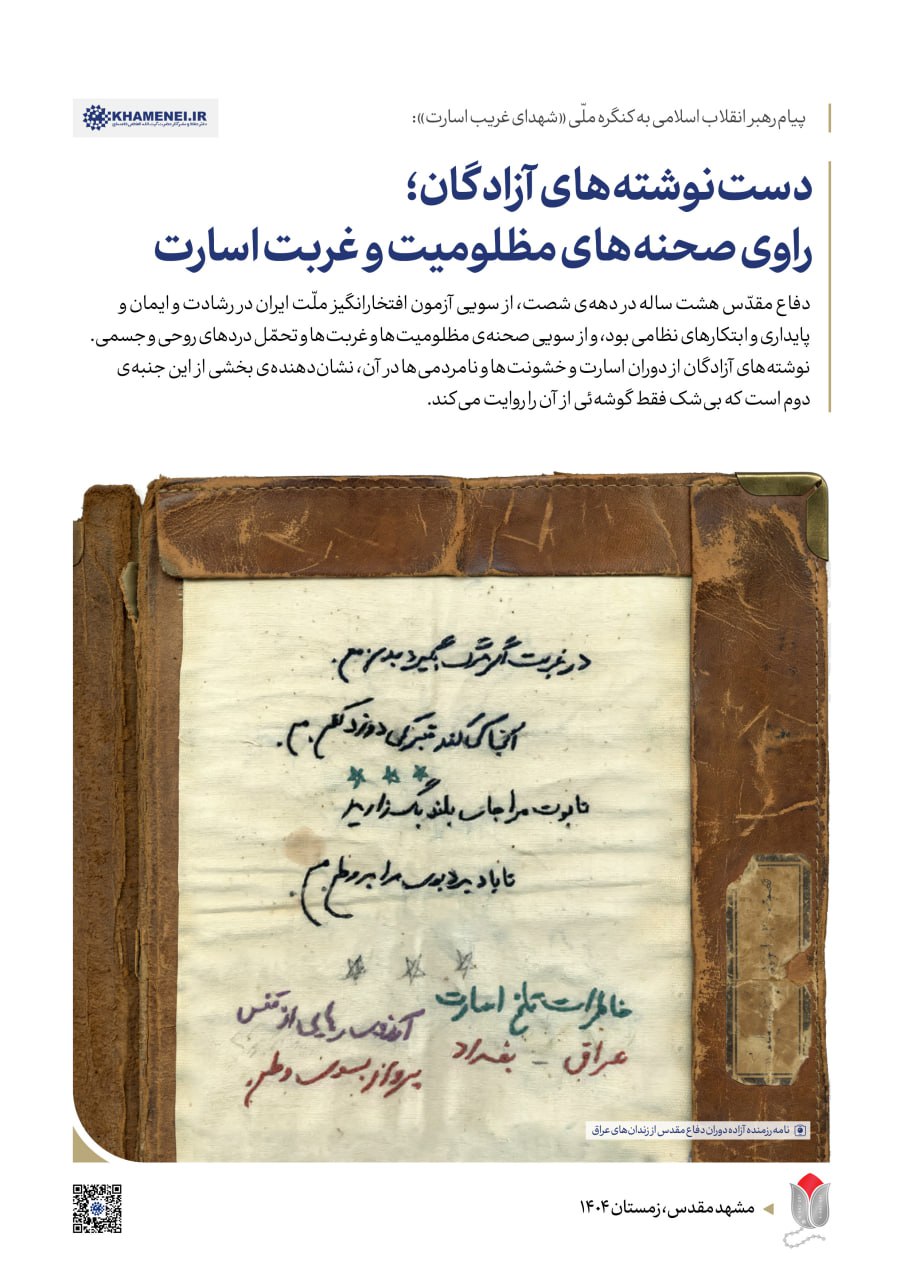 KHAMENEI.IR
پیام رهبر انقلاب اسلامی به کنگره ملّی «شهدای غریب اسارت»:
دست‌نوشته‌های آزادگان؛
راوی صحنه‌های مظلومیت و غربت اسارت
دفاع مقدّس هشت ساله در دهه‌ی شصت، از سویی آزمون افتخارانگیز ملّت ایران در رشادت و ایمان و
پایداری و ابتکارهای نظامی بود، و از سویی صحنه‌ی مظلومیت‌ها و غربت‌ها و تحمّل دردهای روحی و جسمی.
نوشته‌های آزادگان از دوران اسارت و خشونت‌ها و نامردمی‌ها در آن، نشان‌دهنده‌ی بخشی از این جنبه‌ی
دوم است که بی‌شک فقط گوشه‌ئی از آن را روایت می‌کند.
در غربت اگر مرگ بگیرد بدن من.
آیا کی کند قبر کی دوزد کفن من.
تابوت مرا جای بلند بگذارید
تا باد برد بوی مرا بر وطن من.
خاطرات تلخ اسارت
آرزوی رهایی از قفس
عراق - بغداد
پرواز بسوی وطن.
نامه رزمنده آزاده دوران دفاع مقدس از زندان‌های عراق
مشهد مقدس، زمستان ۱۴۰۴